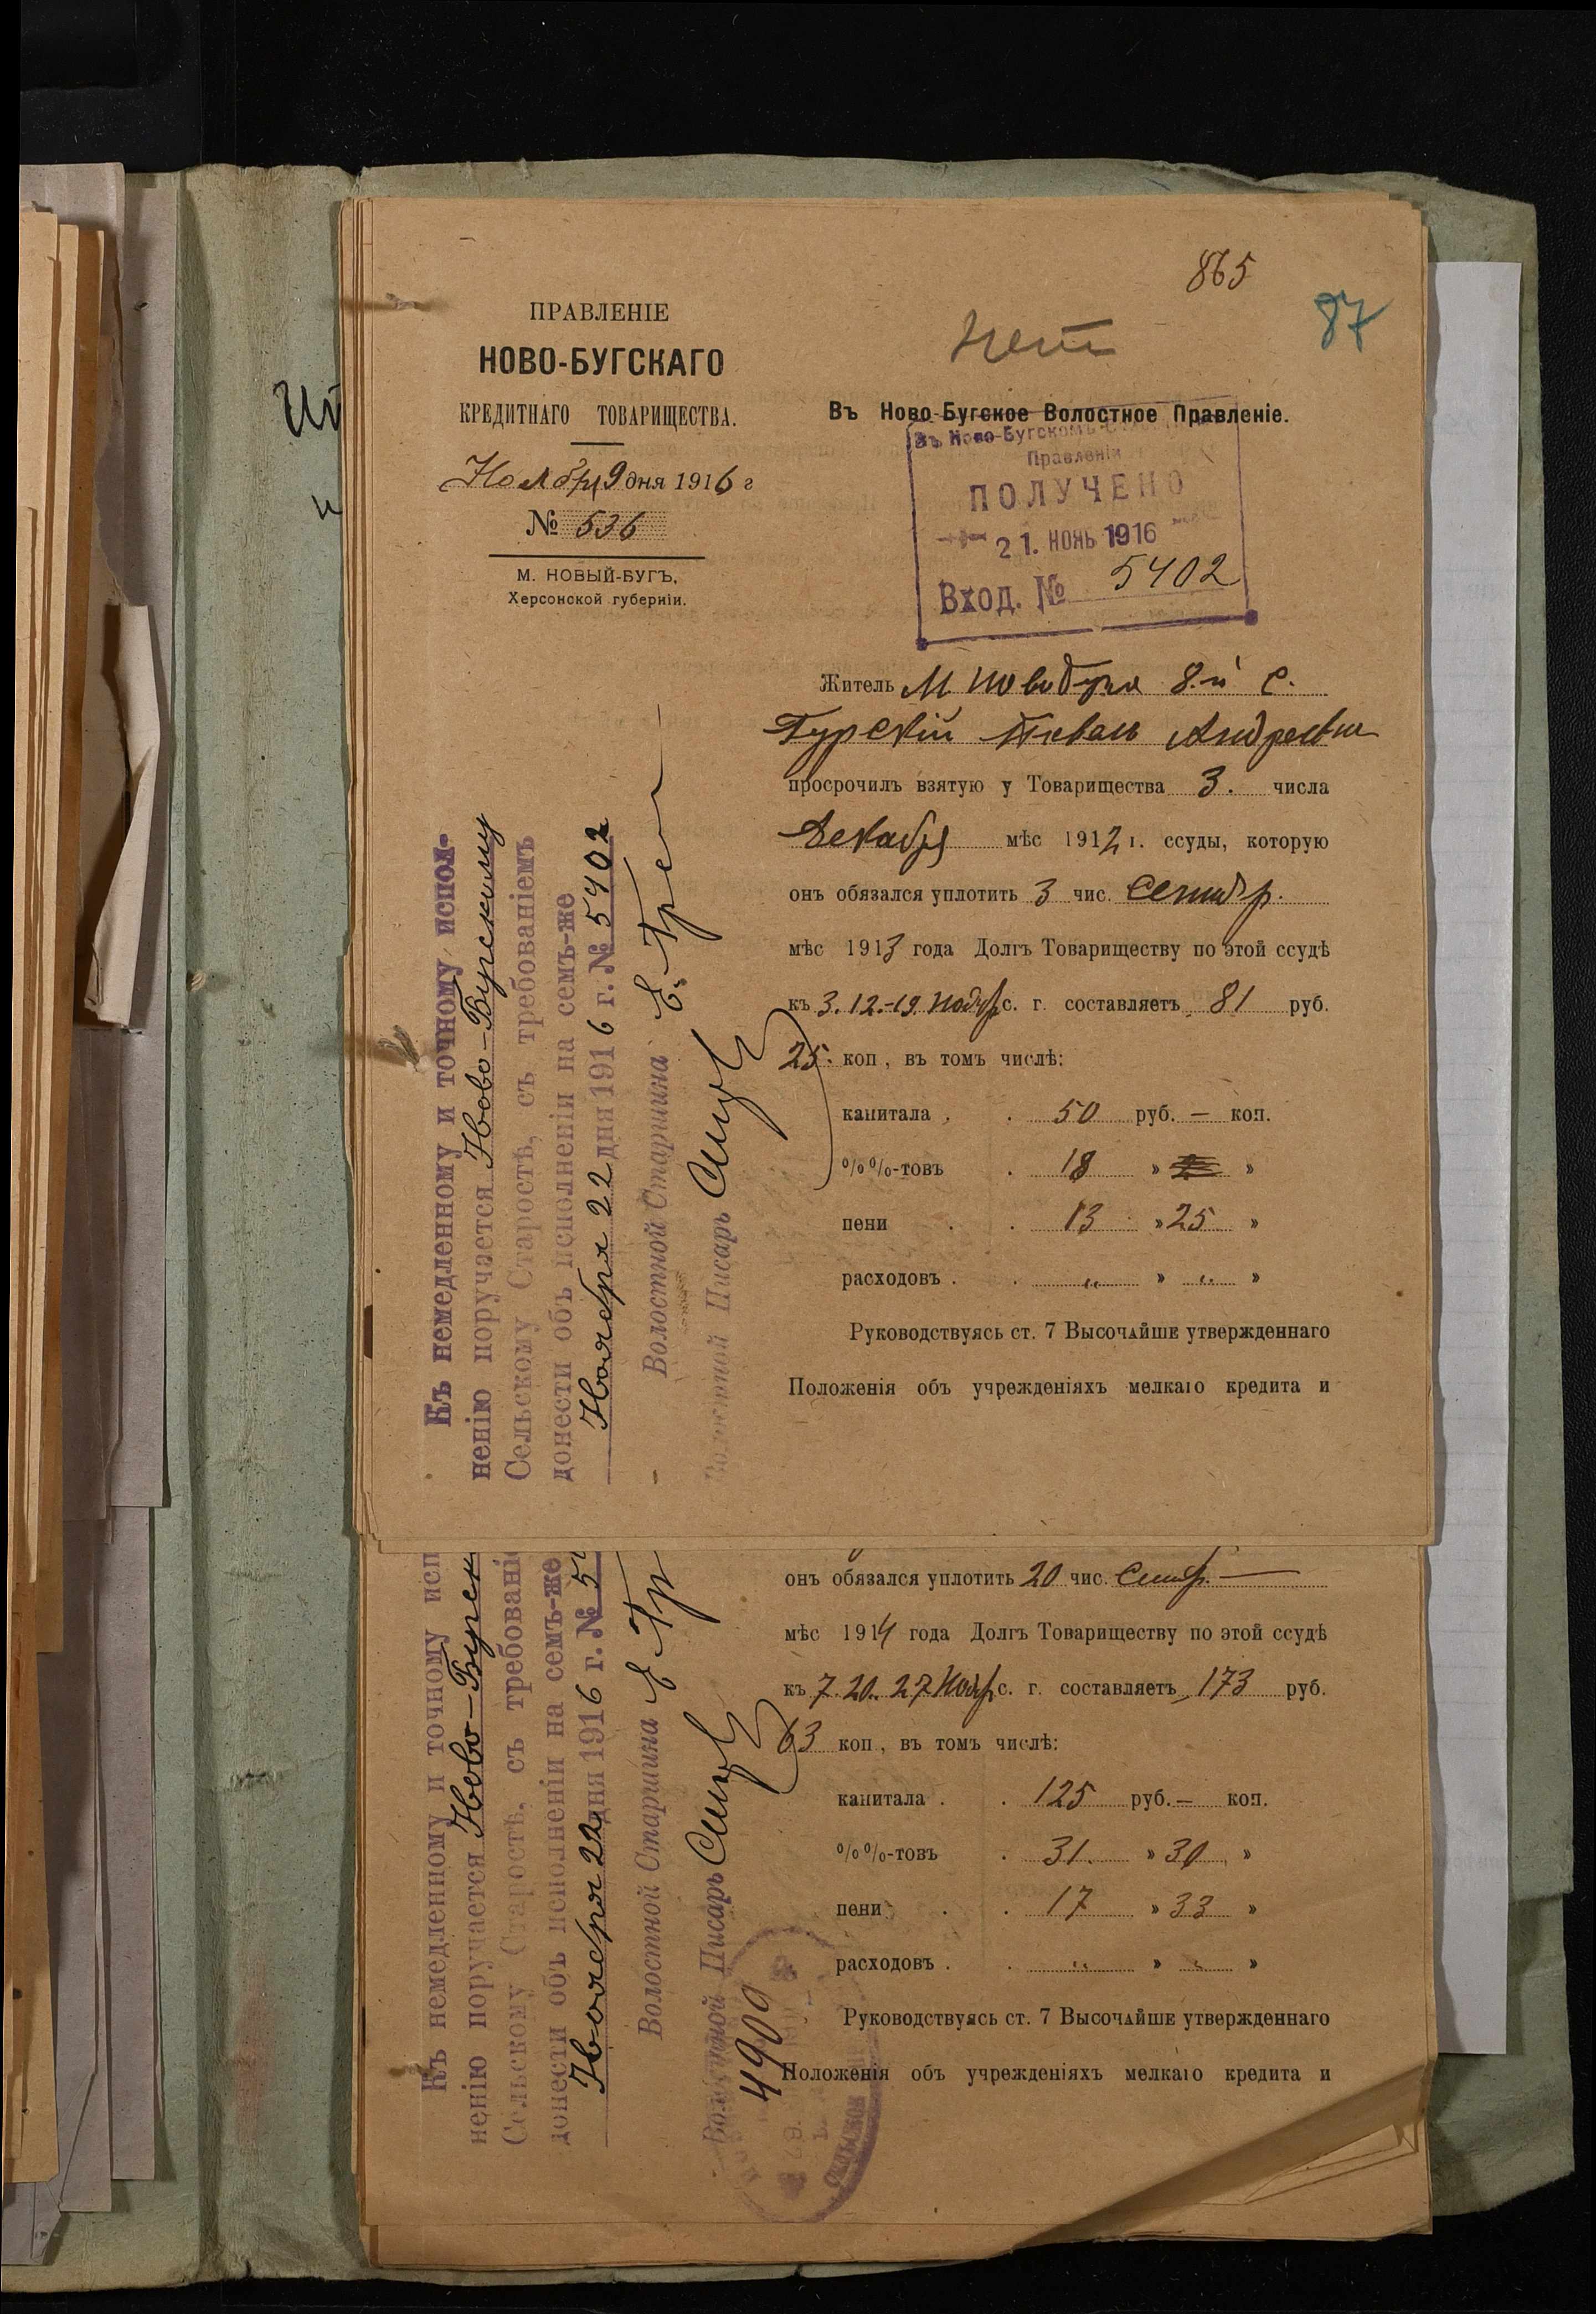 865
87
Нет
ПРАВЛЕНІЕ
НОВО-БУГСКАГО
КРЕДИТНАГО ТОВАРИЩЕСТВА.
Ноября 9 дня 1916 г
№ 536
М. НОВЫЙ-БУГЪ,
Херсонской губерніи.
Въ Ново-Бугское Волостное Правленіе.
Въ Ново-Бугскомъ
Правленіи
ПОЛУЧЕНО
21. НОЯБ 1916
Вход. № 5402
Житель М. Новобуга 8-й с.
Гурскій Павелъ Андреевич
просрочилъ взятую у Товарищества 3. числа
Декабря мѣс 1912 г. ссуды, которую
онъ обязался уплотить 3 чис. Сентябр.
мѣс 1913 года Долгъ Товариществу по этой ссудѣ
къ 3.12.-19. Ноябр с. г. составляетъ 81 руб.
25. коп, въ томъ числѣ:
капитала . . 50 руб. — коп.
%%-товъ . 18 » »
пени . . 13 » 25 »
расходовъ . . „ » „ »
Руководствуясь ст. 7 Высочайше утвержденнаго
Положенія объ учрежденіяхъ мелкаго кредита и
Къ немедленному и точному испол-
ненію поручается Ново-Бугскому
Сельскому Старостѣ, съ требованіемъ
донести объ исполненіи на семъ-же
Ноября 22 дня 1916 г. № 5402
Волостной Старшина Е.
Волостной Писарь
онъ обязался уплотить 20 чис. Сентяр. —
мѣс 1914 года Долгъ Товариществу по этой ссудѣ
къ 7. 20. 27 Ноябр с. г. составляетъ 173 руб.
63 коп, въ томъ числѣ:
капитала . . 125 руб. — коп.
%%-товъ . 31. » 30 »
пени . . 17 » 33 »
расходовъ . . „ » „ »
Руководствуясь ст. 7 Высочайше утвержденнаго
Положенія объ учрежденіяхъ мелкаго кредита и
Къ немедленному и точному исп
ненію поручается Ново-Бугск
Сельскому Старостѣ, съ требованіе
донести объ исполненіи на семъ-же
Ноября 22 дня 1916 г. № 5
Волостной Старшина Е
Волостной Писарь
4909